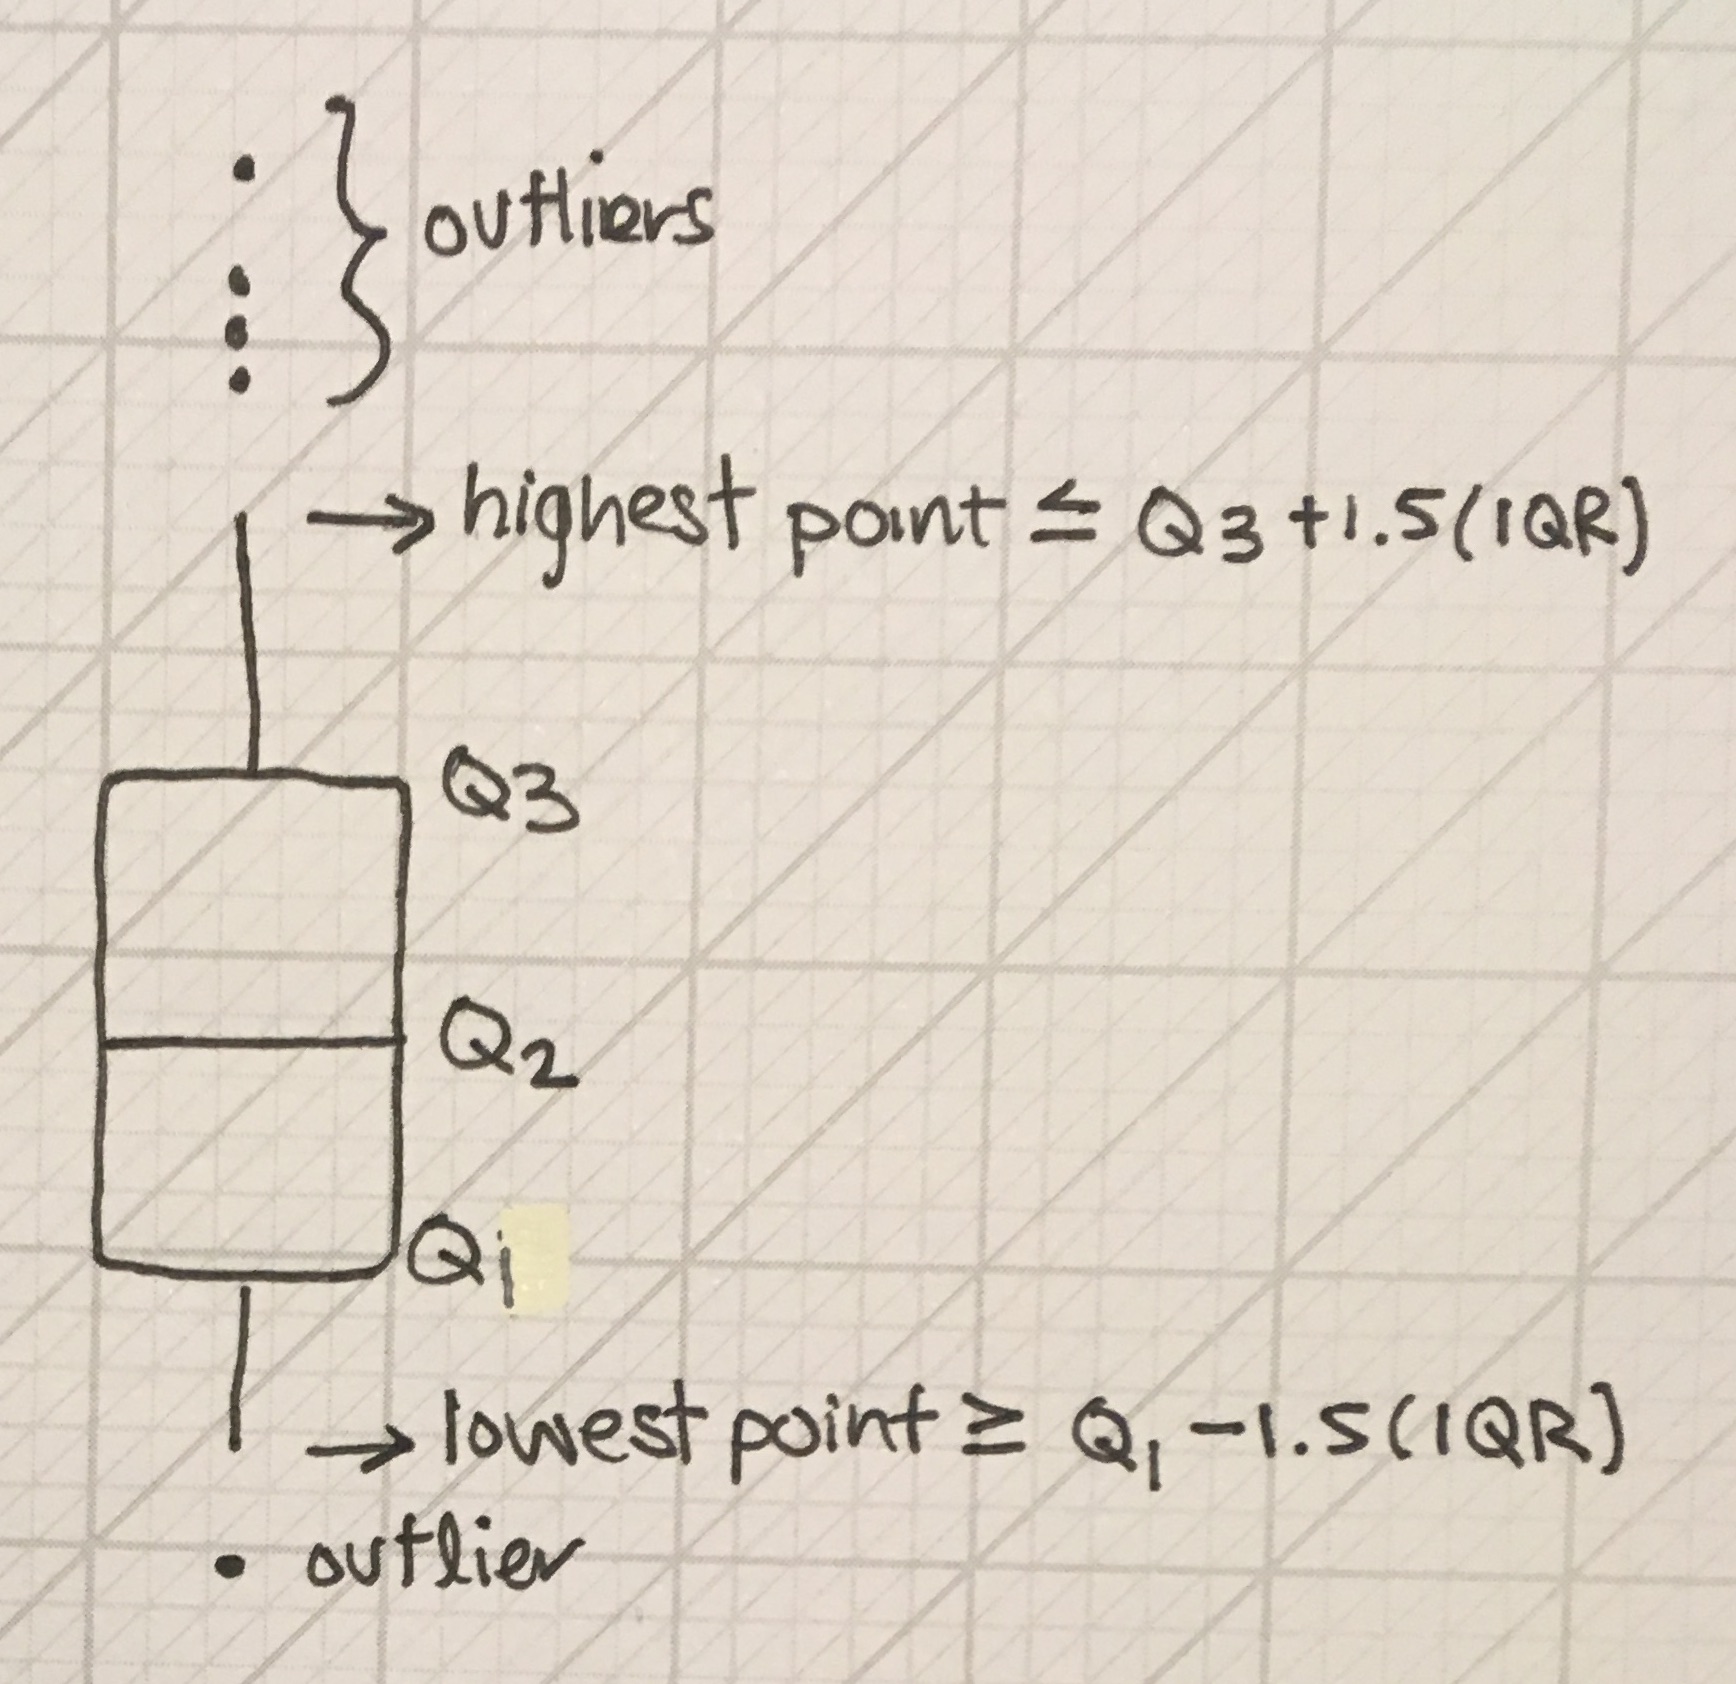 outliers
→ highest point ≤ Q3 +1.5(IQR)
Q3
Q2
Q1
→ lowest point ≥ Q1 -1.5(IQR)
• outlier